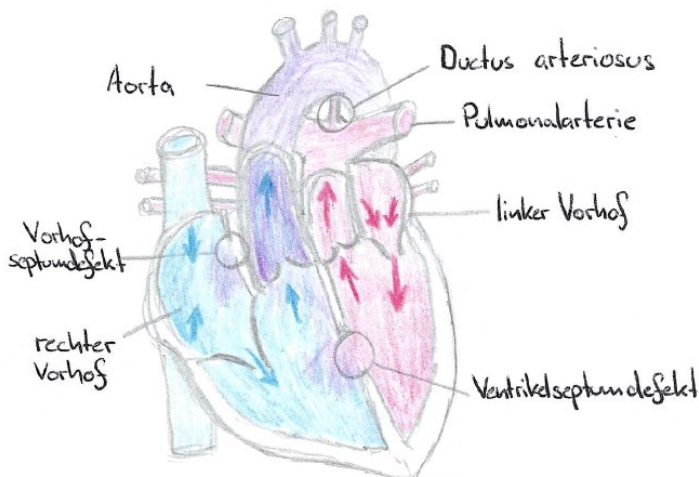 Aorta
Ductus arteriosus
Pulmonalarterie
linker Vorhof
Vorhof-
septumdefekt
rechter
Vorhof
Ventrikelseptumdefekt